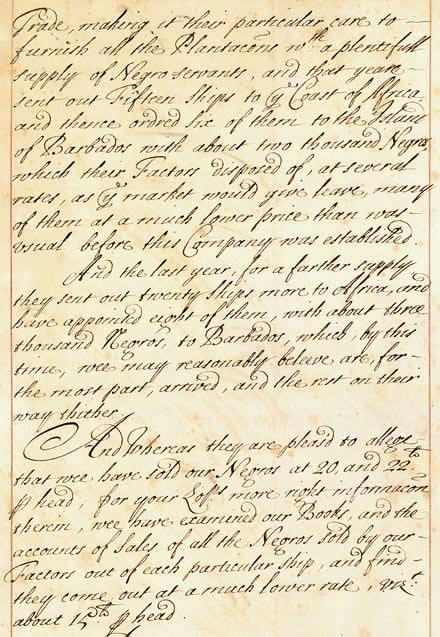 Trade, making it their particular care to
furnish all the Plantacons wth a plentifull
supply of Negro servants, and that yeare
sent out Fifteen Ships to ye Coast of Africa
and thence ordred six of them to the Island
of Barbados with about two thousand Negros,
which their Factors disposed of, at several
rates, as ye market would give leave, many
of them at a much lower price than was
usual before this Company was established.
And the last year, for a farther supply
they sent out twenty ships more to Africa, and
have appointed eight of them, with about three
thousand Negros, to Barbados, which, by this
time, wee may reasonably beleeve are, for
the most part, arrived, and the rest on their
way thither.
And whereas they are pleasd to allege
that wee have sold our Negros at 20 and 22
℔ head, for your Lopps more right informacon
therein, wee have examined our Books, and the
accounts of Sales of all the Negros sold by our
Factors out of each particular ship, and find
they come out at a much lower rate, vizt:
about 15 ℔ head.